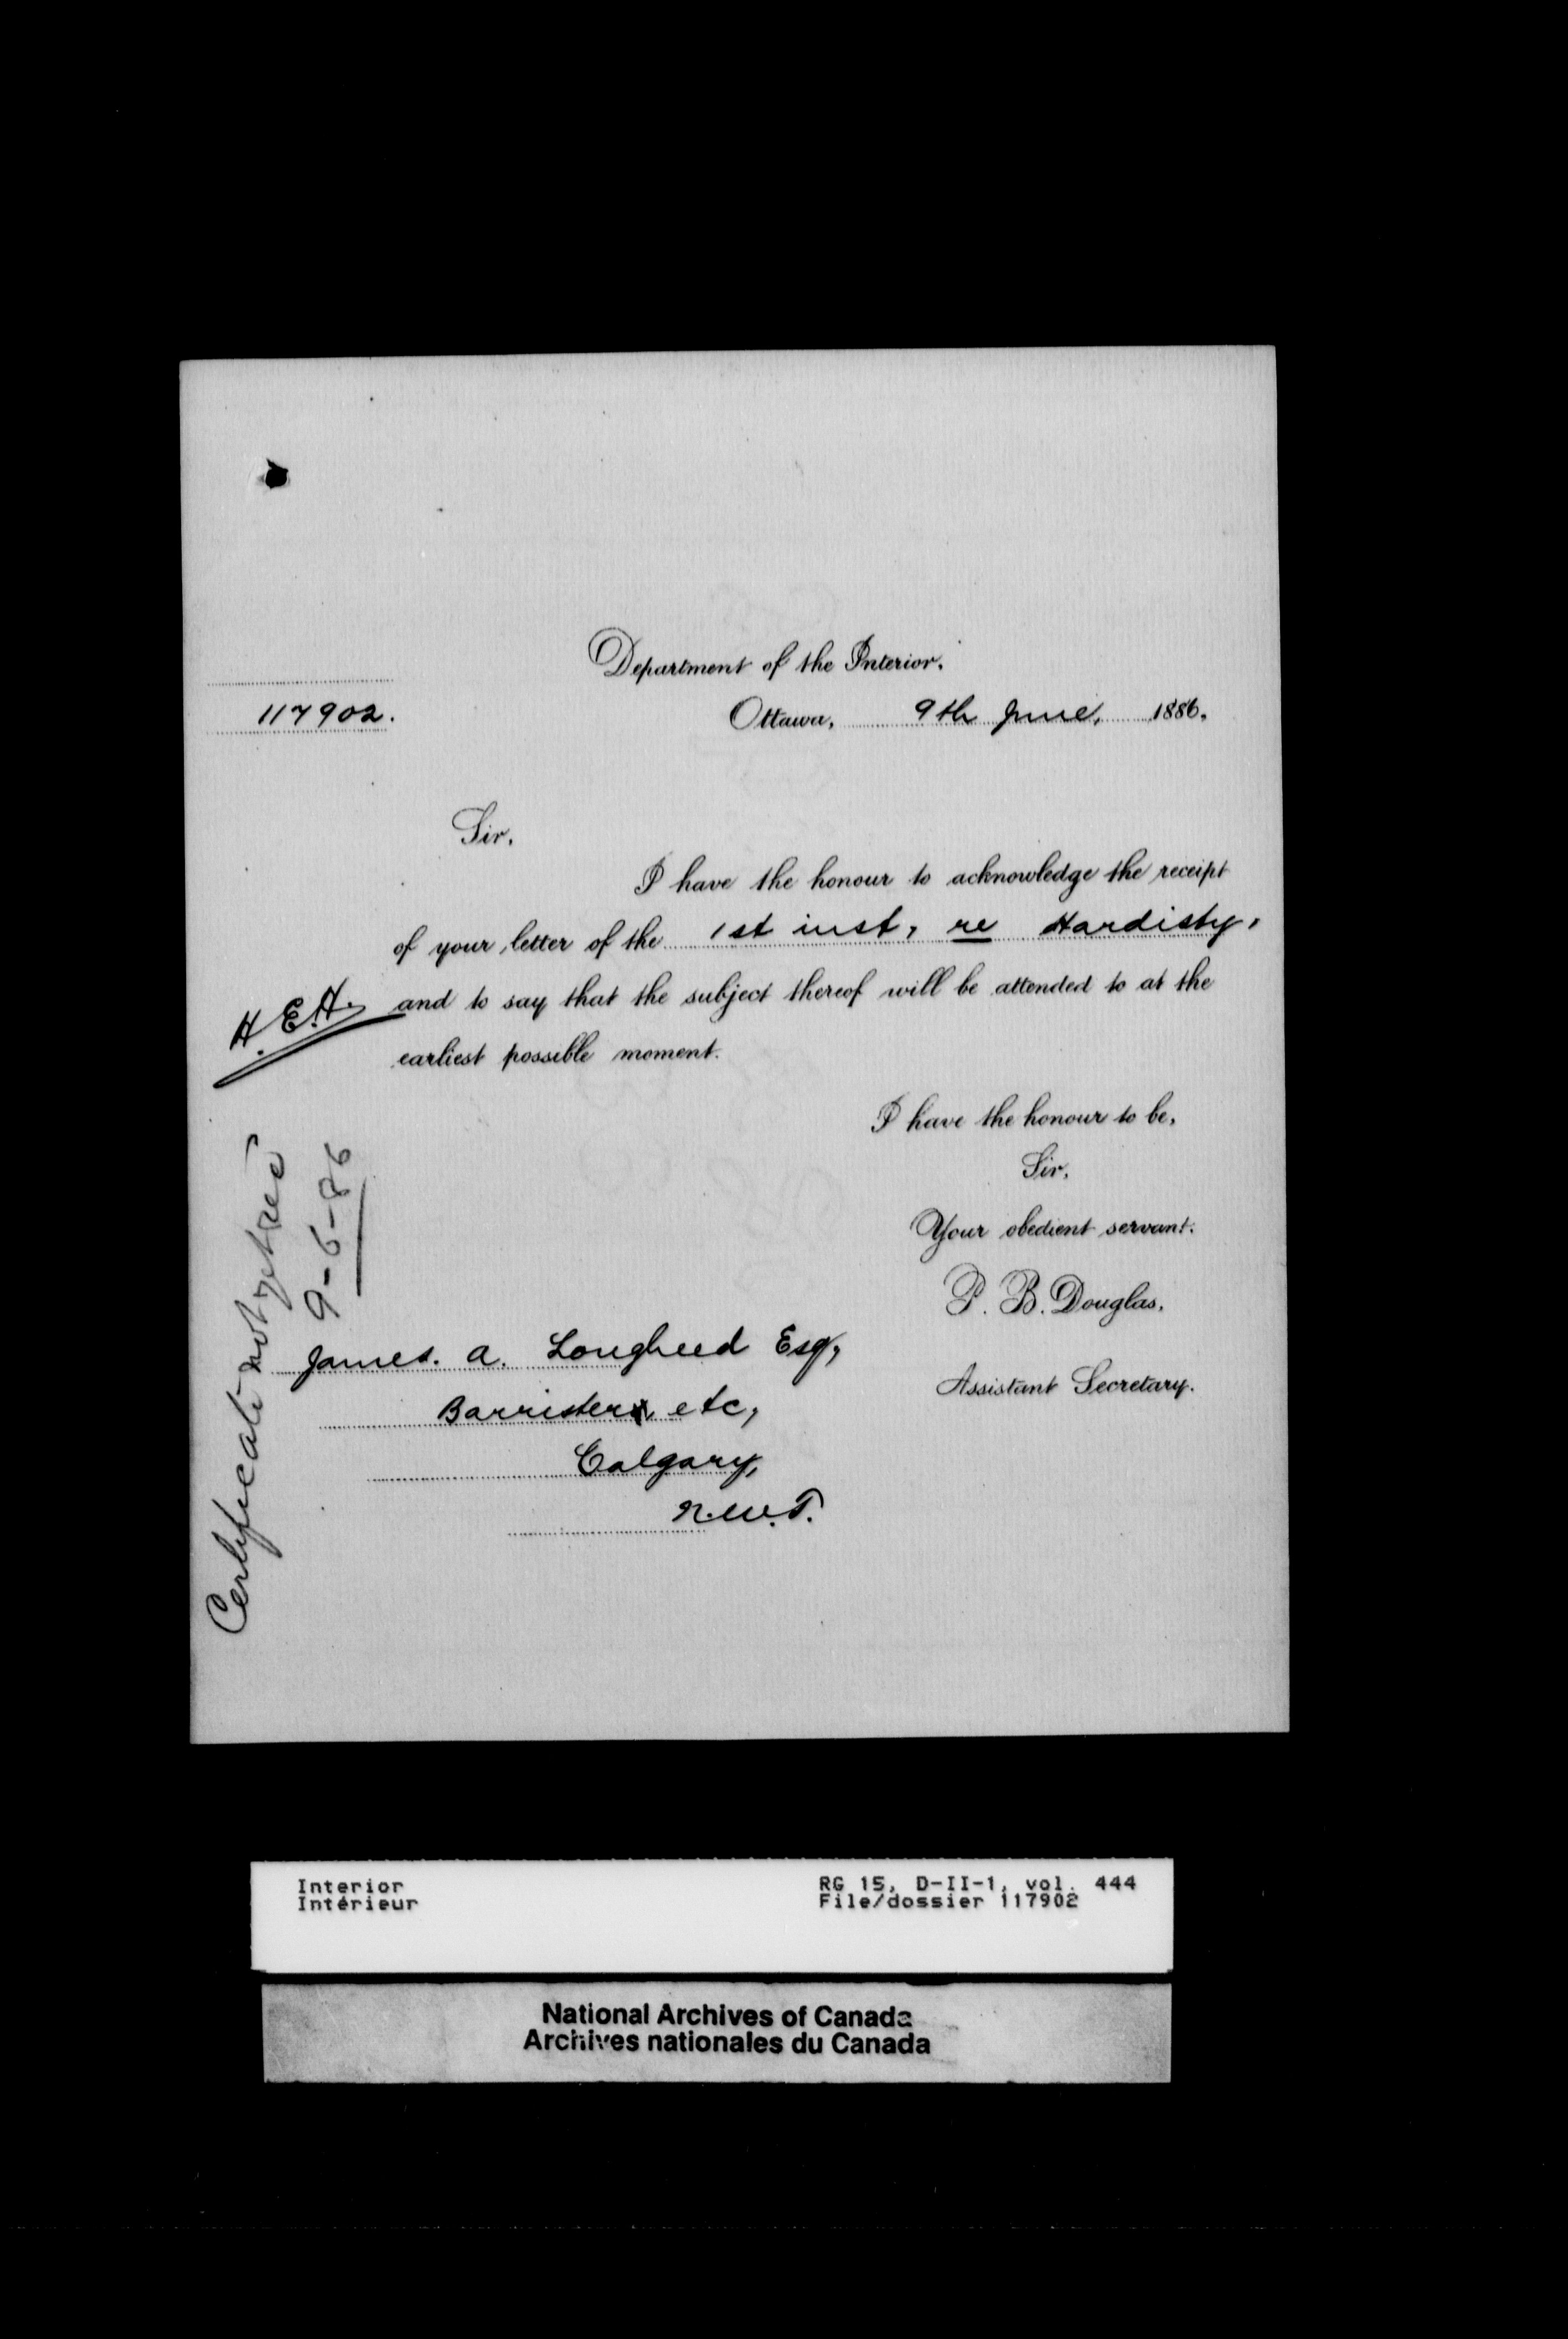 Department of the Interior,
117902.
Ottawa, 9th June, 1886,
Sir,
I have the honour to acknowledge the receipt
of your letter of the 1st inst, re Hardisty,
and to say that the subject thereof will be attended to at the
H.E.H.
earliest possible moment.
I have the honour to be,
Sir,
Your obedient servant.
P. B. Douglas,
Assistant Secretary.
James. A. Lougheed Esq,
Barrister etc,
Calgary,
N.W.T.
Certificate not yet rec'd
9-6-86
Interior
Intérieur
RG 15, D-II-1, vol. 444
File/dossier 117902
National Archives of Canada
Archives nationales du Canada